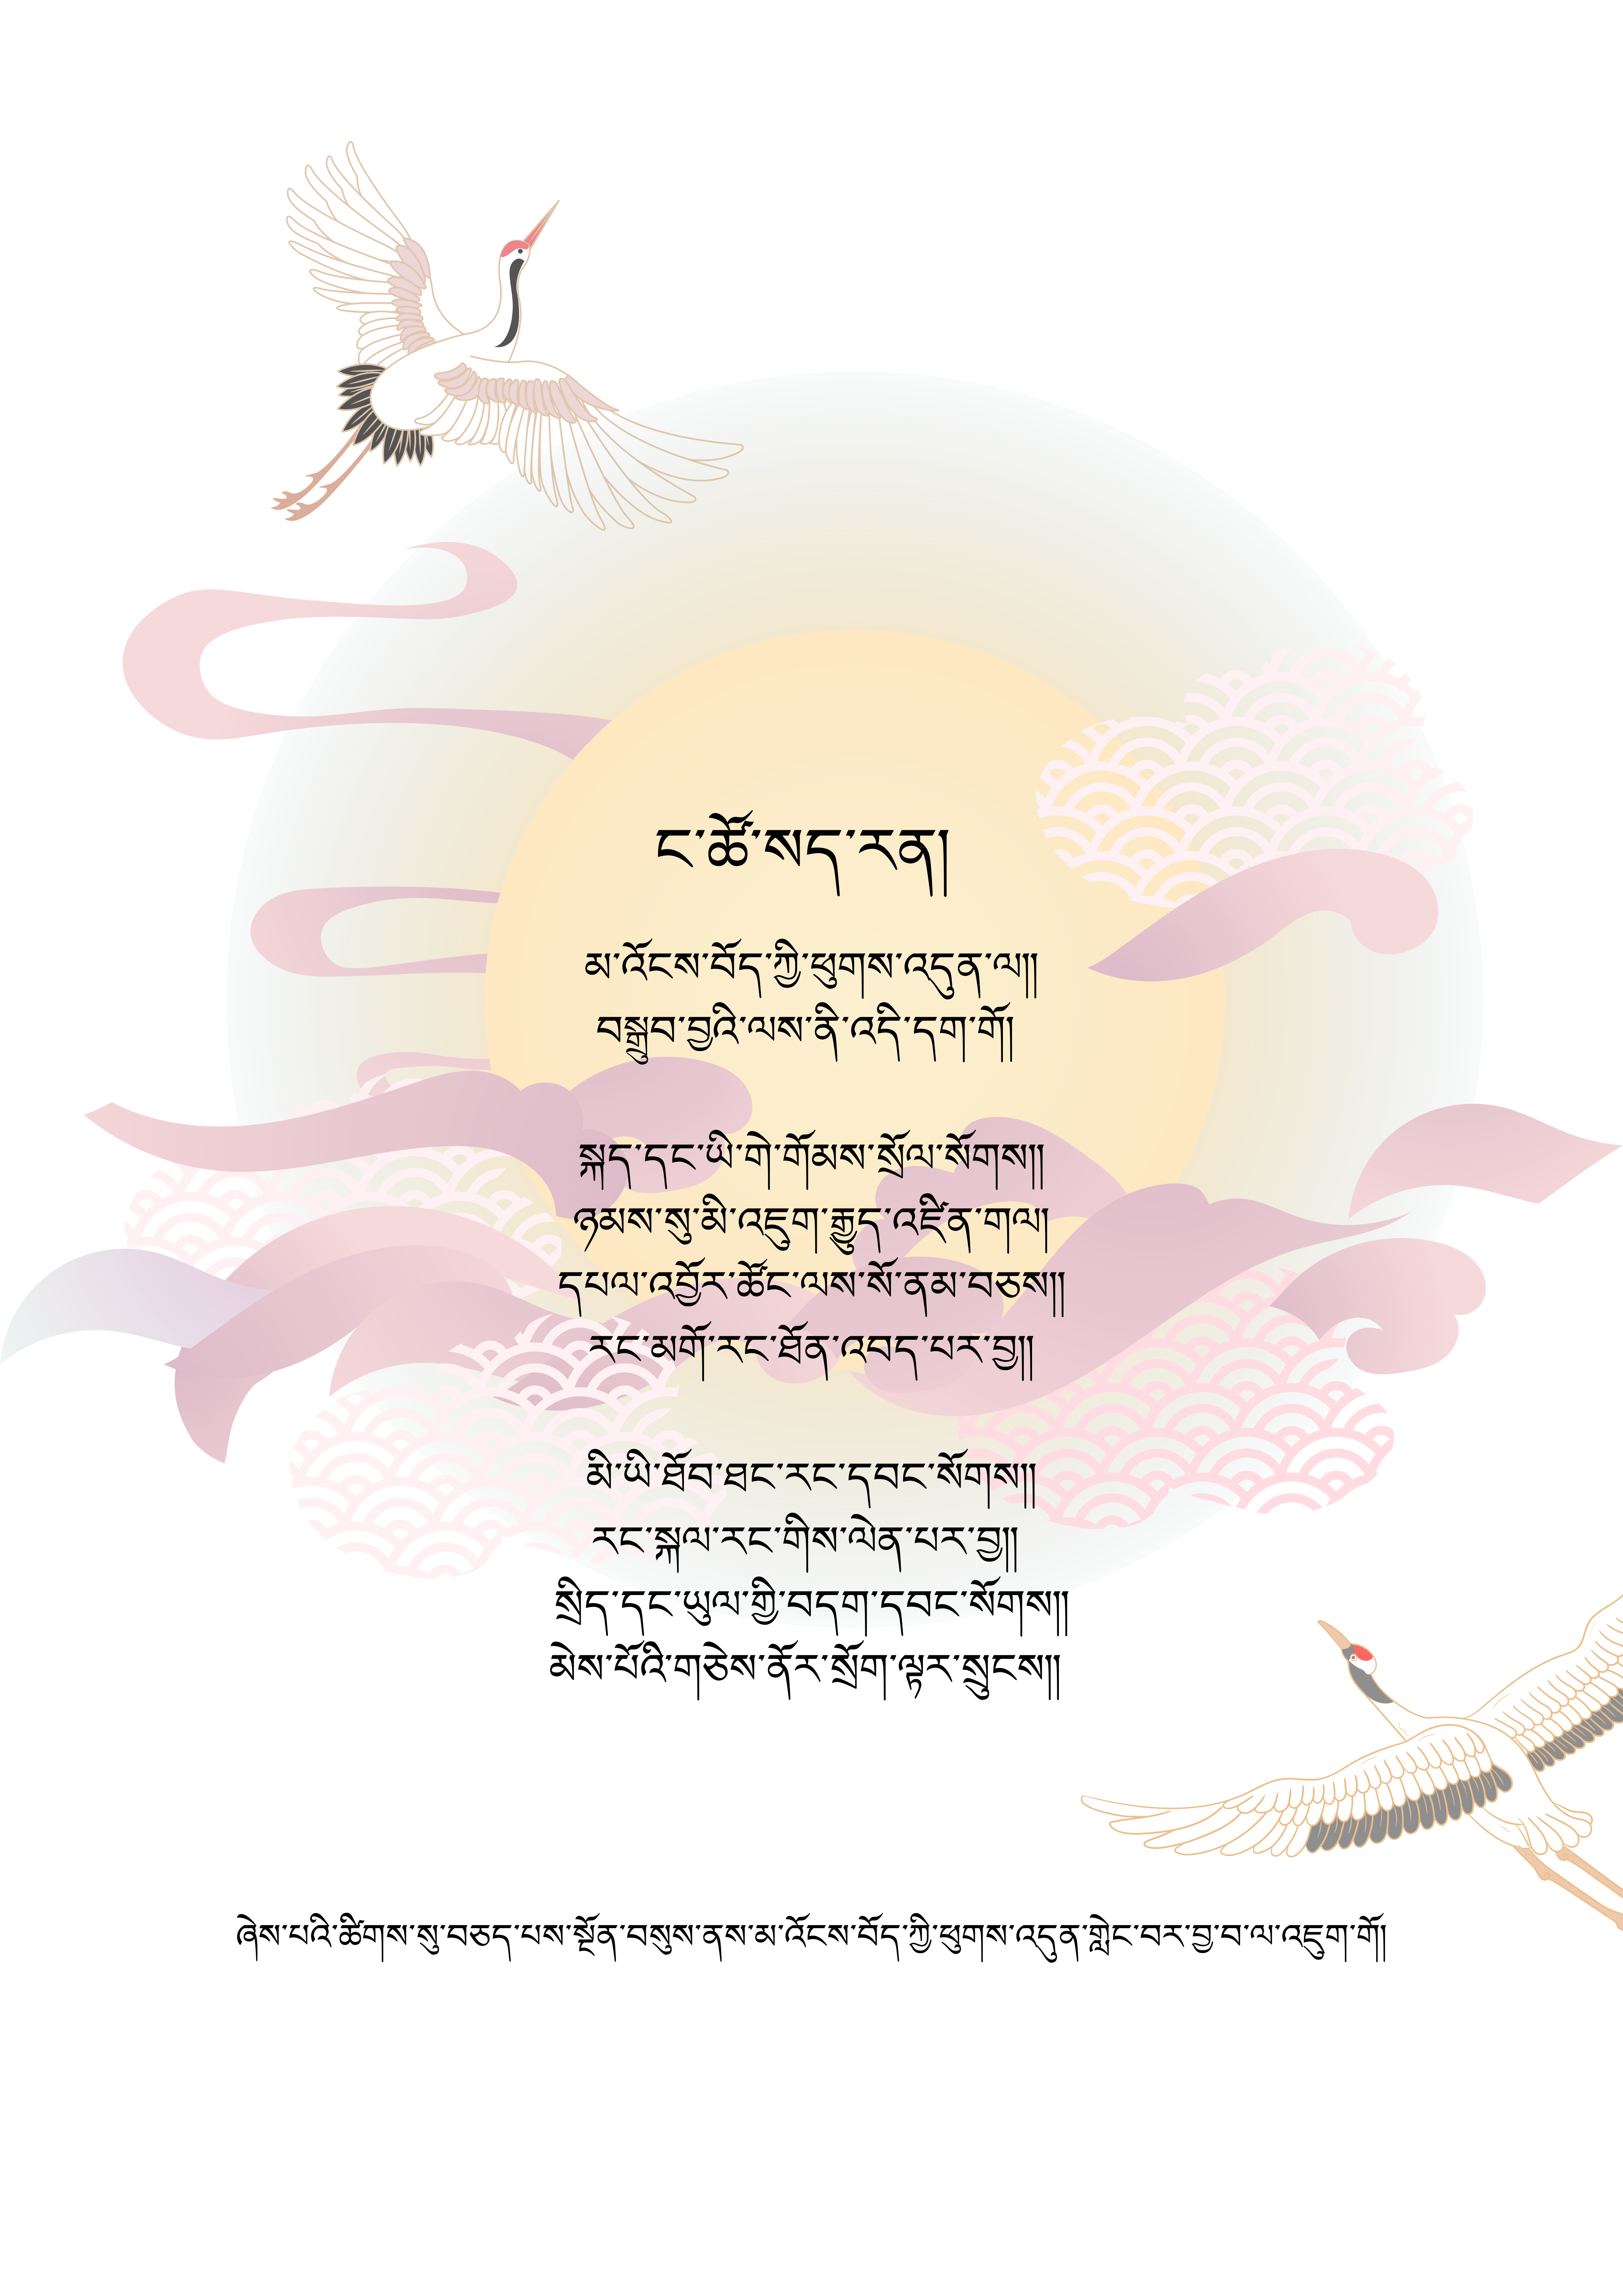 ང་ཚོ་སད་རན།
མ་འོངས་བོད་ཀྱི་ཕུགས་འདུན་ལ།།
བསྒྲུབ་བྱའི་ལས་ནི་འདི་དག་གོ།
སྐད་དང་ཡི་གེ་གོམས་སྲོལ་སོགས།།
ཉམས་སུ་མི་འཇུག་རྒྱུད་འཛིན་གལ།
དཔལ་འབྱོར་ཚོང་ལས་སོ་ནམ་བཅས།།
རང་མགོ་རང་ཐོན་འབད་པར་བྱ།།
མི་ཡི་ཐོབ་ཐང་རང་དབང་སོགས།།
རང་སྐལ་རང་གིས་ལེན་པར་བྱ།།
སྲིད་དང་ཡུལ་གྱི་བདག་དབང་སོགས།།
མེས་པོའི་གཅེས་ནོར་སྲོག་ལྟར་སྲུངས།།
ཞེས་པའི་ཚིགས་སུ་བཅད་པས་སྔོན་བསུས་ནས་མ་འོངས་བོད་ཀྱི་ཕུགས་འདུན་གླེང་བར་བྱ་བ་ལ་འཇུག་གོ།